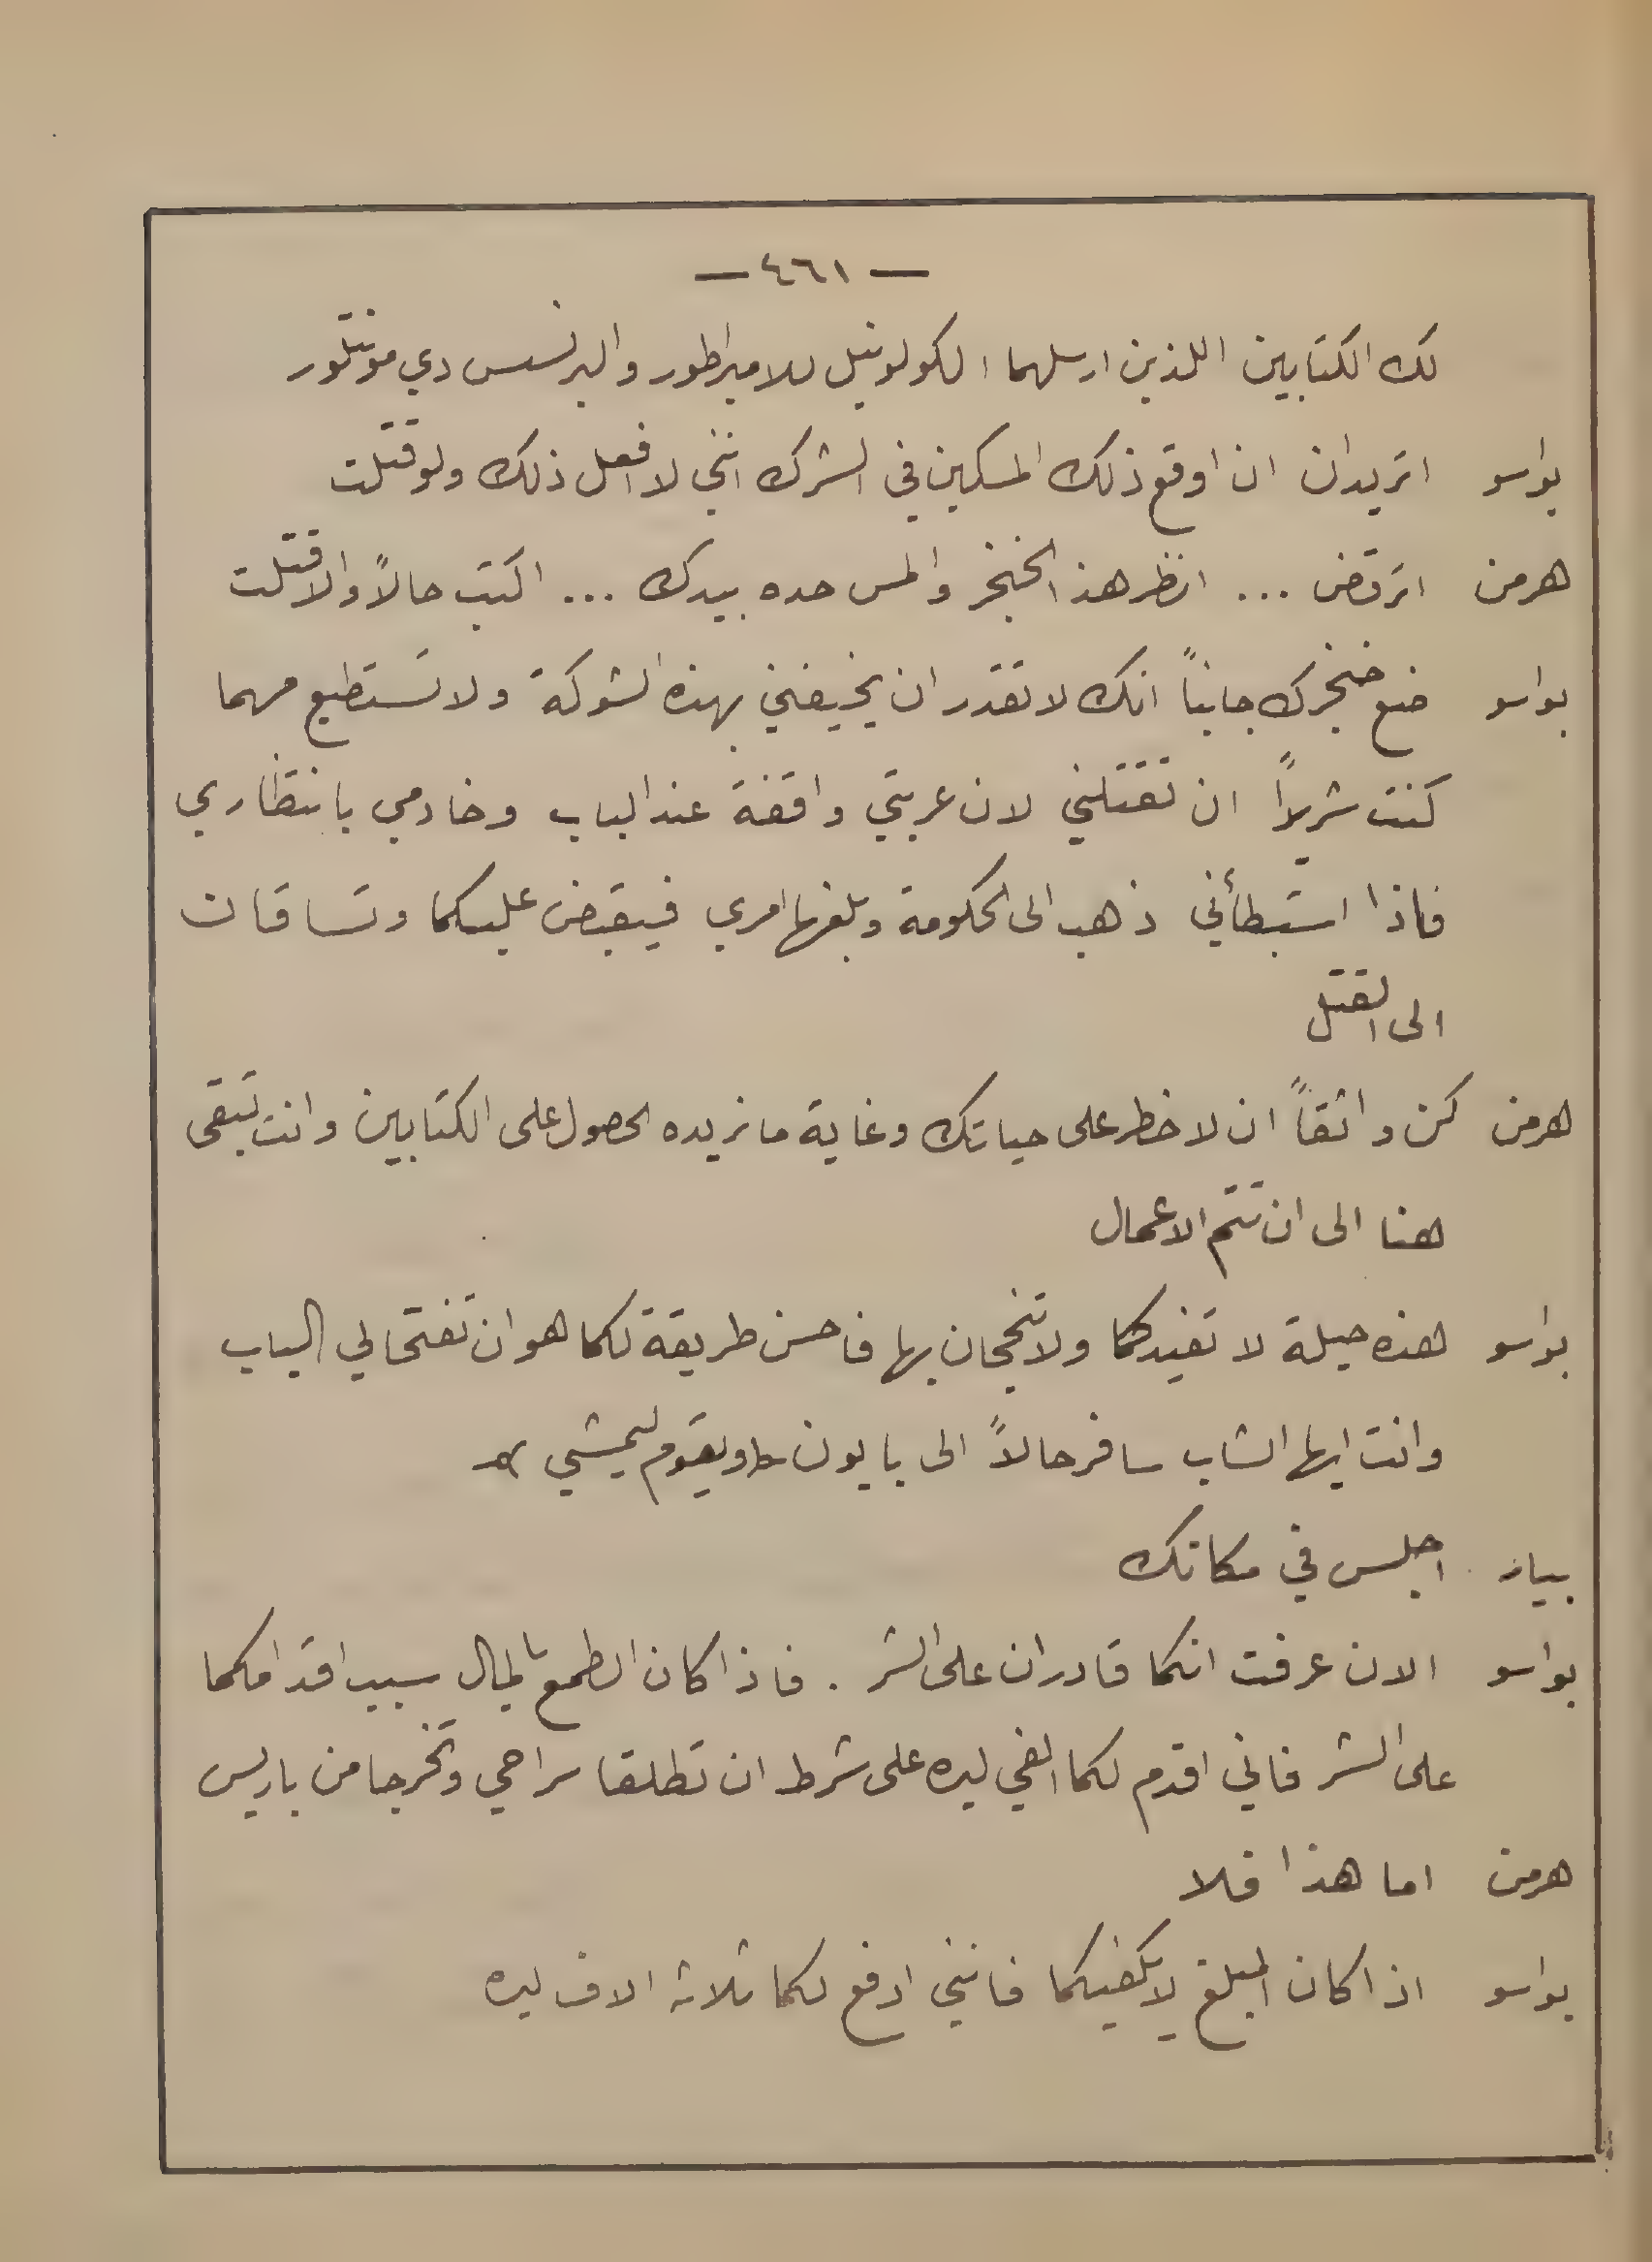 — ٤٦١ —
لك الكتابين اللذين ارسلهما الكولونيل للامبراطور والبرنسس دي مونتلور
بواسو اتريدان ان اوقع ذلك المسكين في الشرك انني لا افعل ذلك ولو قتلت
هرمن اترفض ... انظر هذا الخنجر والمس حده بيدك ... اكتب حالاً والا قتلت
بواسو ضع خنجرك جانباً انك لا تقدر ان يخيفني بهذه الشوكة ولا تستطيع مهما
كنت شريراً ان تقتلني لان عربتي واقفة عند الباب وخادمي بانتظاري
فاذا استبطأني ذهب الى الحكومة وبلغها امري فيقبض عليكما وتساقان
الى القتل
هرمن كن واثقاً ان لا خطر على حياتك وغاية ما نريده الحصول على الكتابين وانت تبقى
هنا الى ان تتم الاعمال
بواسو هذه حيلة لا تفيدكما ولا تنجحان بها فاحسن طريقة لكما هو ان تفتحا لي الباب
وانت ايها الشاب سافر حالاً الى بايون (ويقوم ليمشي)
بيار اجلس في مكانك
بواسو الان عرفت انكما قادران على الشر . فاذا كان الطمع بالمال سبب اقدامكما
على الشر فاني اقدم لكما الفي ليره على شرط ان تطلقا سراحي وتخرجا من باريس
هرمن اما هذا فلا
بواسو اذا كان المبلغ لا يكفيكما فانني ادفع لكما ثلاثة الاف ليره